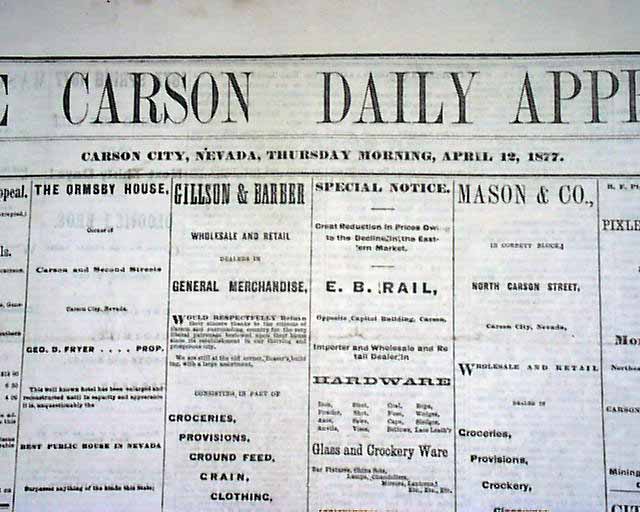 E CARSON DAILY APPE
CARSON CITY, NEVADA, THURSDAY MORNING, APRIL 12, 1877.
THE ORMSBY HOUSE,
Corner of
Carson and Second Streets
Carson City, Nevada.
GEO. D. FRYER ..... PROP.
This well known hotel has been enlarged and
reconstructed until in capacity and appearance
it is, unquestionably the
BEST PUBLIC HOUSE IN NEVADA
Surpasses anything of the kind in this State;
GILLSON & BARBER
WHOLESALE AND RETAIL
DEALERS IN
GENERAL MERCHANDISE,
WOULD RESPECTFULLY Return
their sincere thanks to the citizens of
Carson and surrounding country for the very
liberal patronage bestowed upon their house
since its establishment in our thriving and
prosperous city.
We are still at the old corner,
with a large assortment,
CONSISTING IN PART OF
GROCERIES,
PROVISIONS,
GROUND FEED,
GRAIN,
CLOTHING,
SPECIAL NOTICE.
Great Reduction in Prices Owing
to the Decline in the East-
ern Market.
E. B. RAIL,
Opposite Capitol Building, Carson.
Importer and Wholesale and Re
tail Dealer in
HARDWARE
Iron, Steel, Coal, Rope,
Powder, Shot, Fuse, Wedges,
Axes, Saws, Caps, Sledges,
Anvils, Vises, Bellows, Lace Leath'r
Glass and Crockery Ware
Bar Fixtures, China Sets,
Lamps, Chandeliers,
Mirrors, Lanterns,
Etc., Etc., Etc.
MASON & CO.,
IN CORBETT BLOCK,
NORTH CARSON STREET,
Carson City, Nevada,
WHOLESALE AND RETAIL
DEALER IN
Groceries,
Provisions,
Crockery,
PIXLE
CARSON
Mining